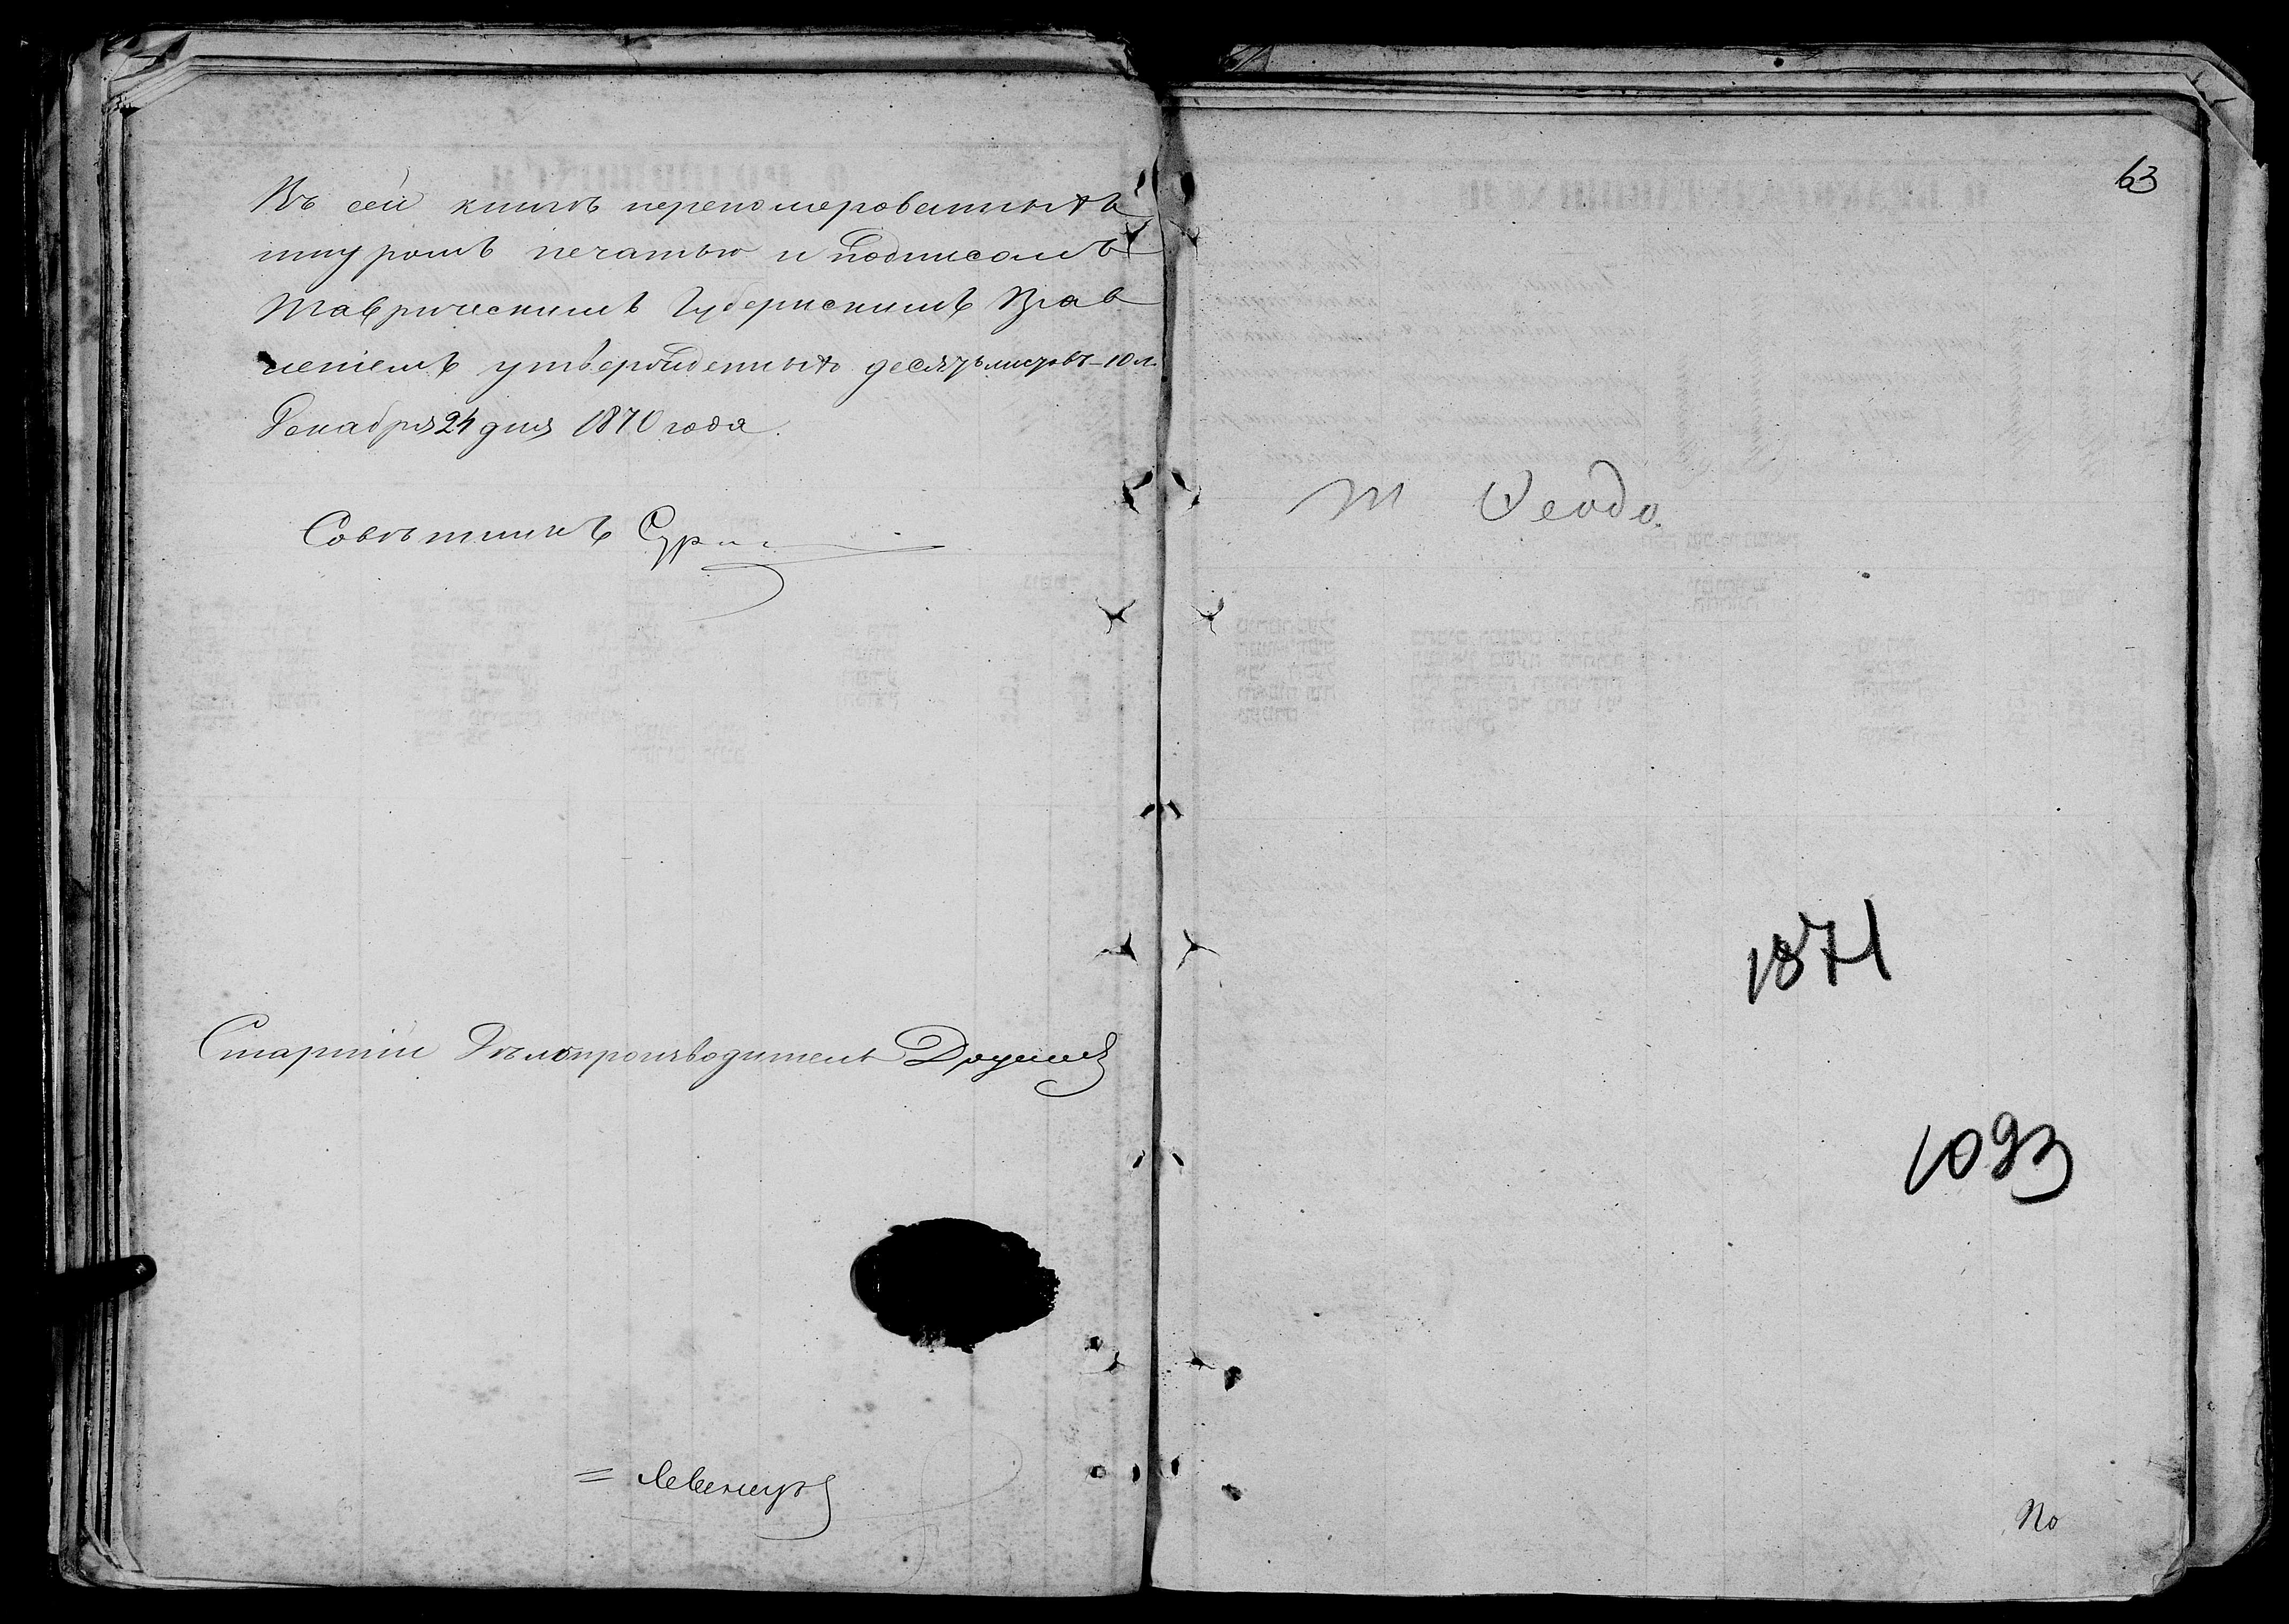 Въ сей книгѣ перенумерованныхъ
шнуромъ печатью и подписомъ
Таврическимъ Губернскимъ Прав
леніемъ утвержденныхъ десять листовъ - 10 л.
Декабря 24 дня 1870 года.
Совѣтникъ
Старшій Дѣлопроизводитель
63
М Ѳеодо.
1871
1093
No